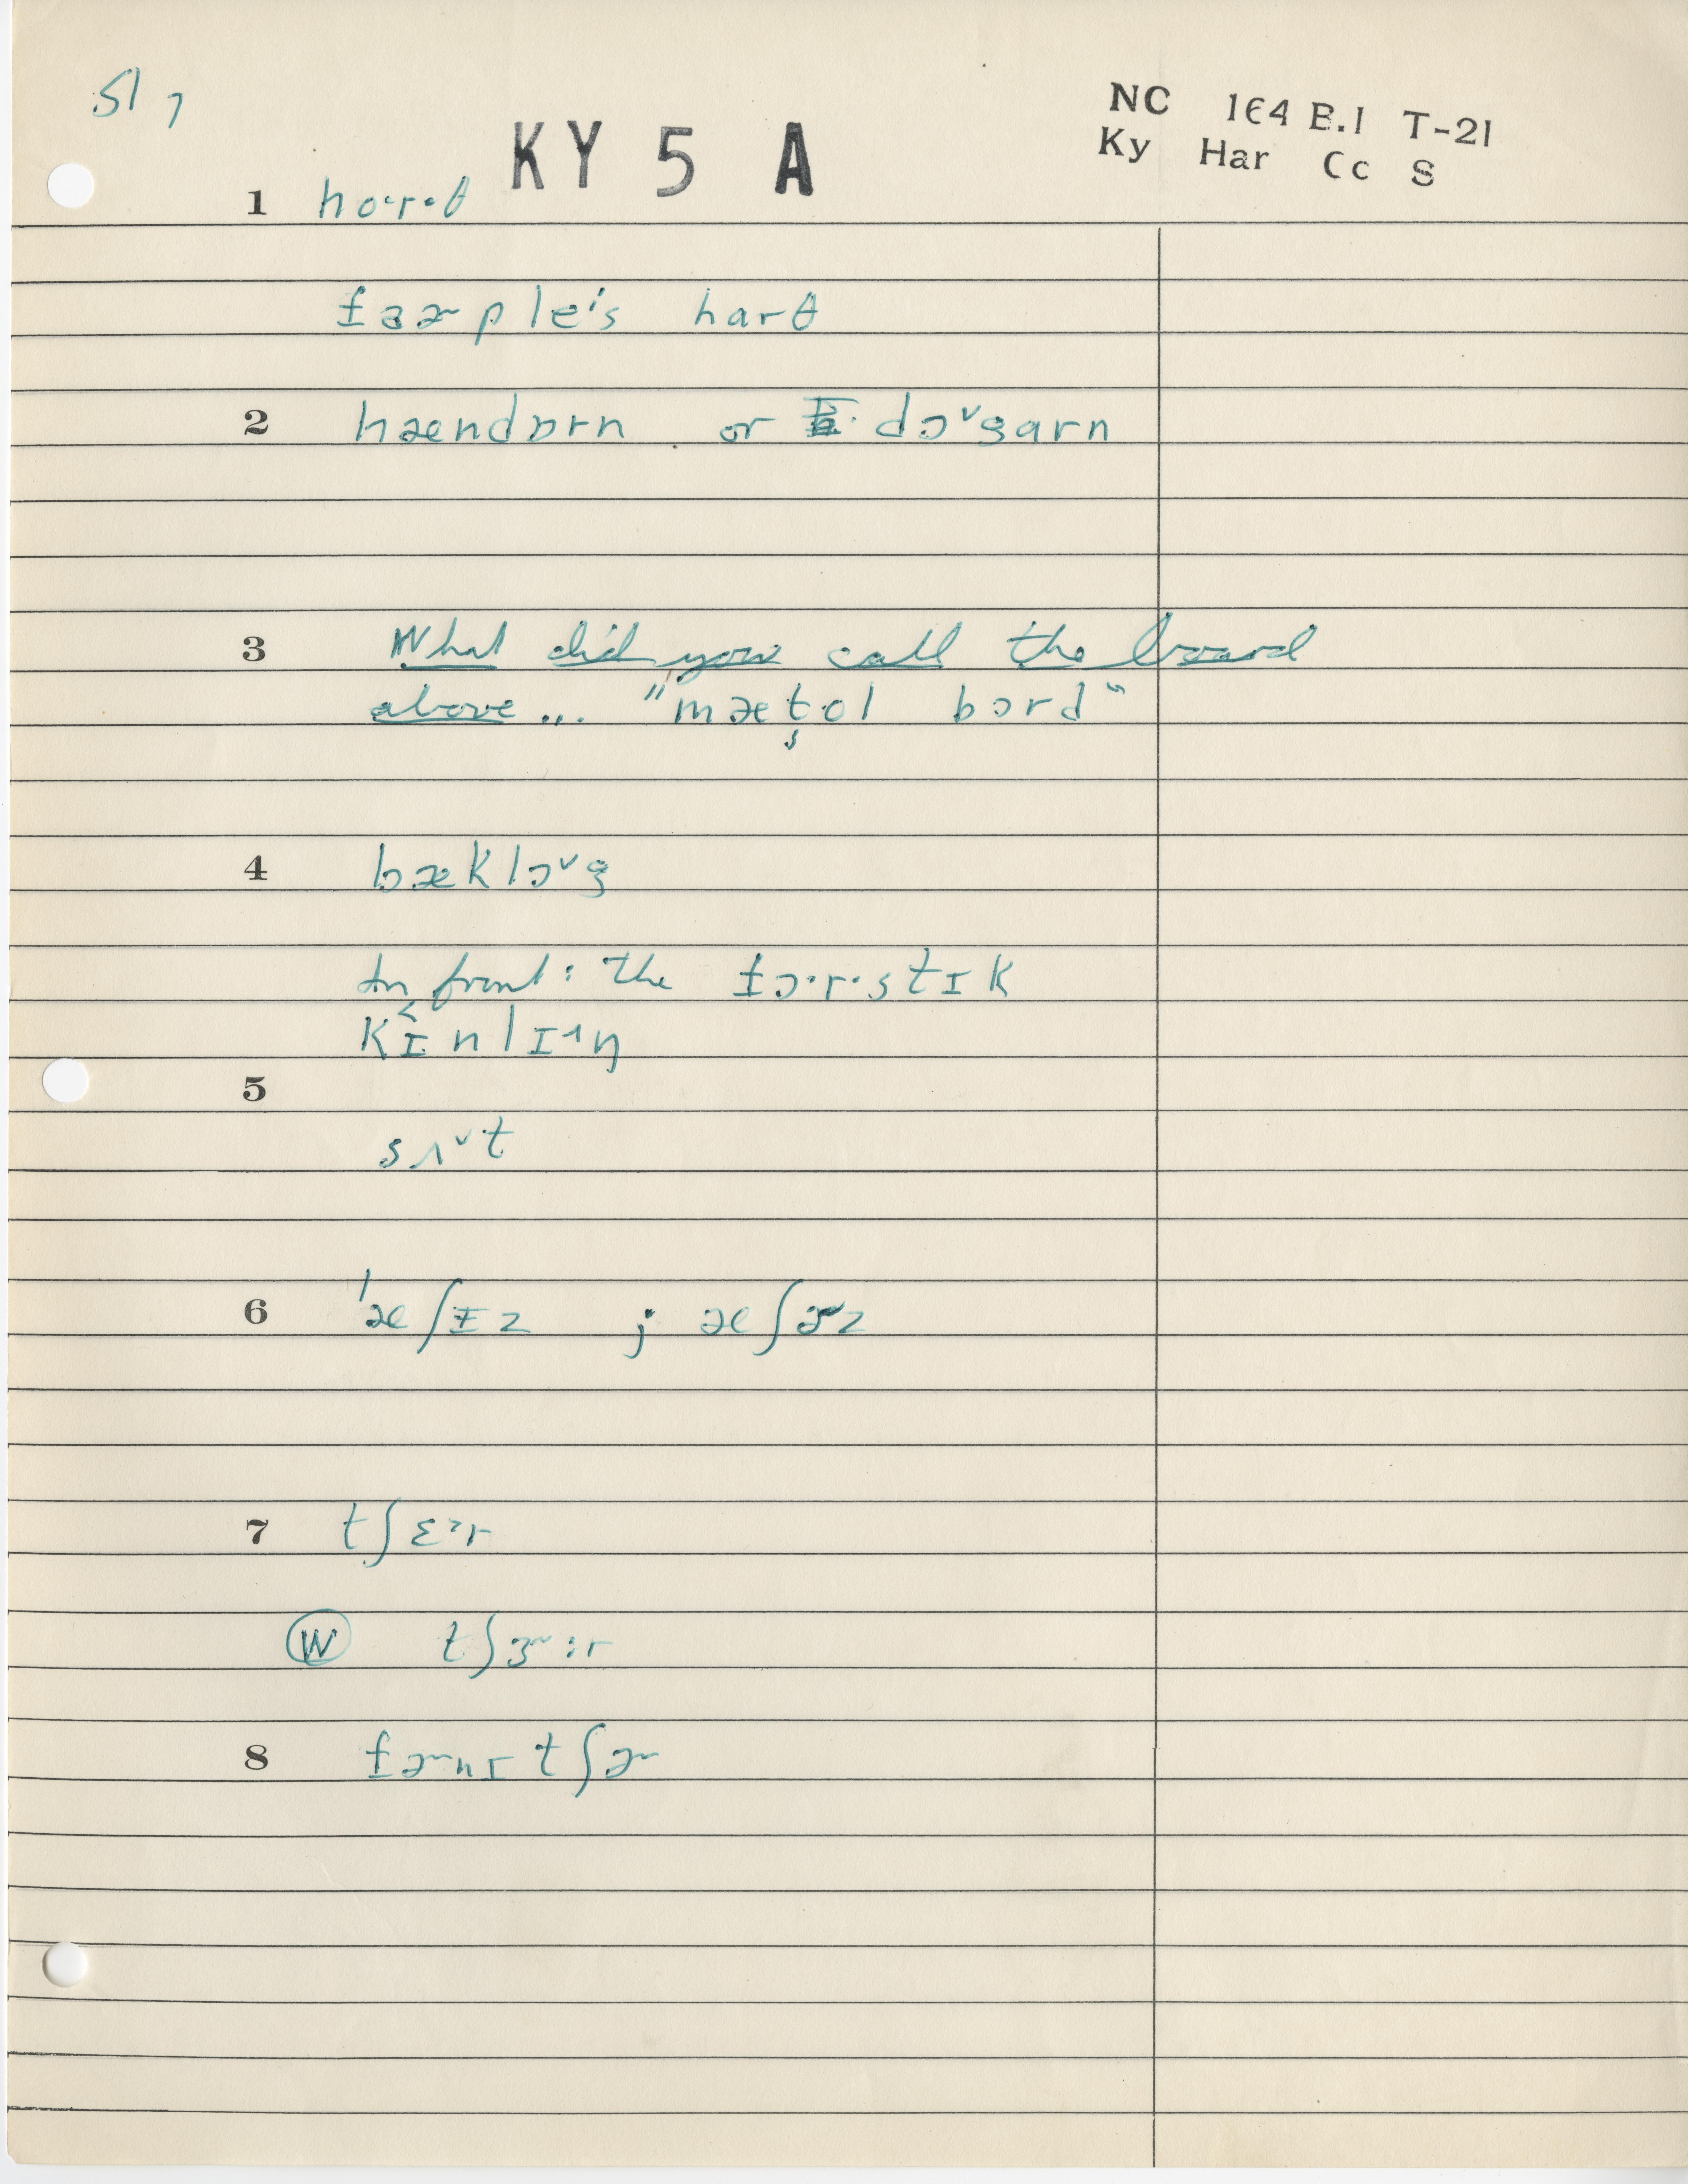 5| 7
NC 164 B.1 T-21
Ky Har Cc S
KY 5 A
1 hɑ·r·θ
faɚple's harθ
2 hændɒrn or dɔ˅garn
3 What did you call the board
above... "mæt̬ol bɔrd"
4 bæklɔ˅g
In front: the fɔ·r·stɪk
kɪ̂nlɪ˄ŋ
5
sʌ˅t
6 'æʃɨz ; æʃɚz
7 tʃɛɚr
Ⓦ tʃɝ:r
8 fɚnɪtʃɚ